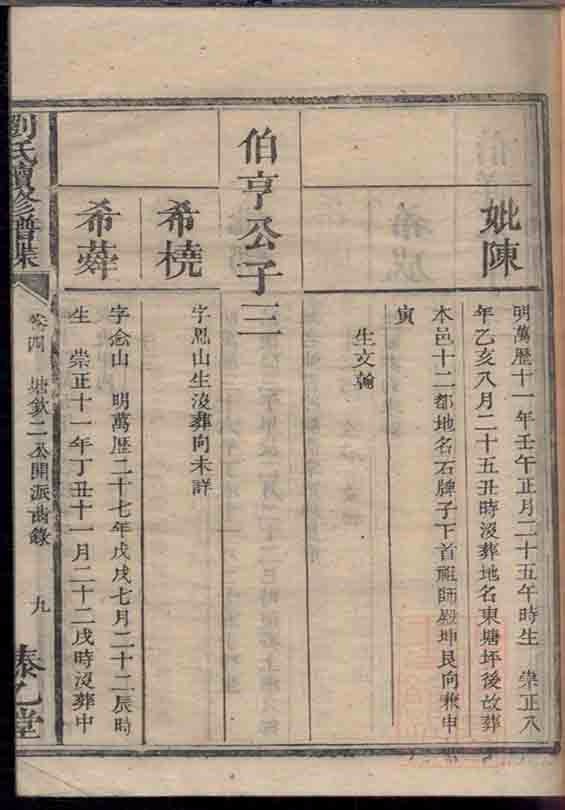 妣陳
明萬歷十一年壬午正月二十五午時生 崇正八
年乙亥八月二十五丑時沒葬地名東塘坪後故葬
本邑十二都地名石牌子下首祖師殿坤艮向兼申
寅
生文翰
伯亨公子三
希橈
字思山生沒葬向未詳
希蕣
字念山 明萬歷二十七年戊戌七月二十二辰時
生 崇正十一年丁丑十一月二十二戌時沒葬中
劉氏續修譜集
卷四 坤欽二公開派齒錄 九
藜乙堂